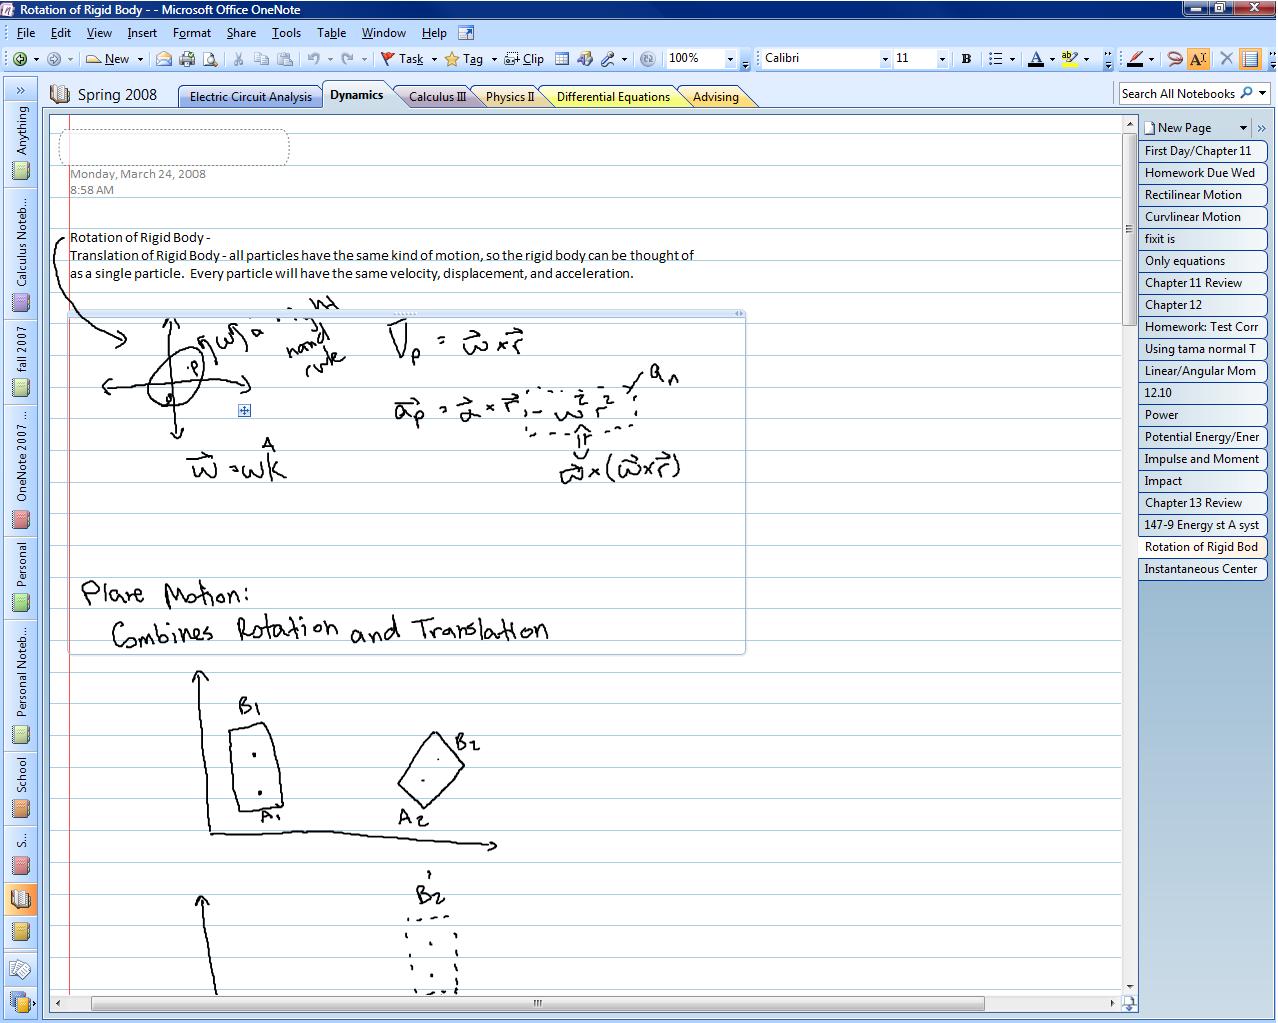 Rotation of Rigid Body - - Microsoft Office OneNote
File Edit View Insert Format Share Tools Table Window Help
New Task Tag Clip 100% Calibri 11 B A ab
Spring 2008 Electric Circuit Analysis Dynamics Calculus III Physics II Differential Equations Advising
Search All Notebooks
Anything
Calculus Noteb...
fall 2007
OneNote 2007 ...
Personal
Personal Noteb...
School
S...
Monday, March 24, 2008
8:58 AM
Rotation of Rigid Body -
Translation of Rigid Body - all particles have the same kind of motion, so the rigid body can be thought of
as a single particle. Every particle will have the same velocity, displacement, and acceleration.
hand
rule
P
V⃗p = ω⃗ × r⃗
a⃗p = α⃗ × r⃗ - ω² r⃗²
an
ω⃗ = ωk̂
ω⃗ × (ω⃗ × r⃗)
Plane Motion:
Combines Rotation and Translation
B1
A1
B2
A2
B2'
New Page
First Day/Chapter 11
Homework Due Wed
Rectilinear Motion
Curvlinear Motion
fixit is
Only equations
Chapter 11 Review
Chapter 12
Homework: Test Corr
Using tama normal T
Linear/Angular Mom
12.10
Power
Potential Energy/Ener
Impulse and Moment
Impact
Chapter 13 Review
147-9 Energy st A syst
Rotation of Rigid Bod
Instantaneous Center